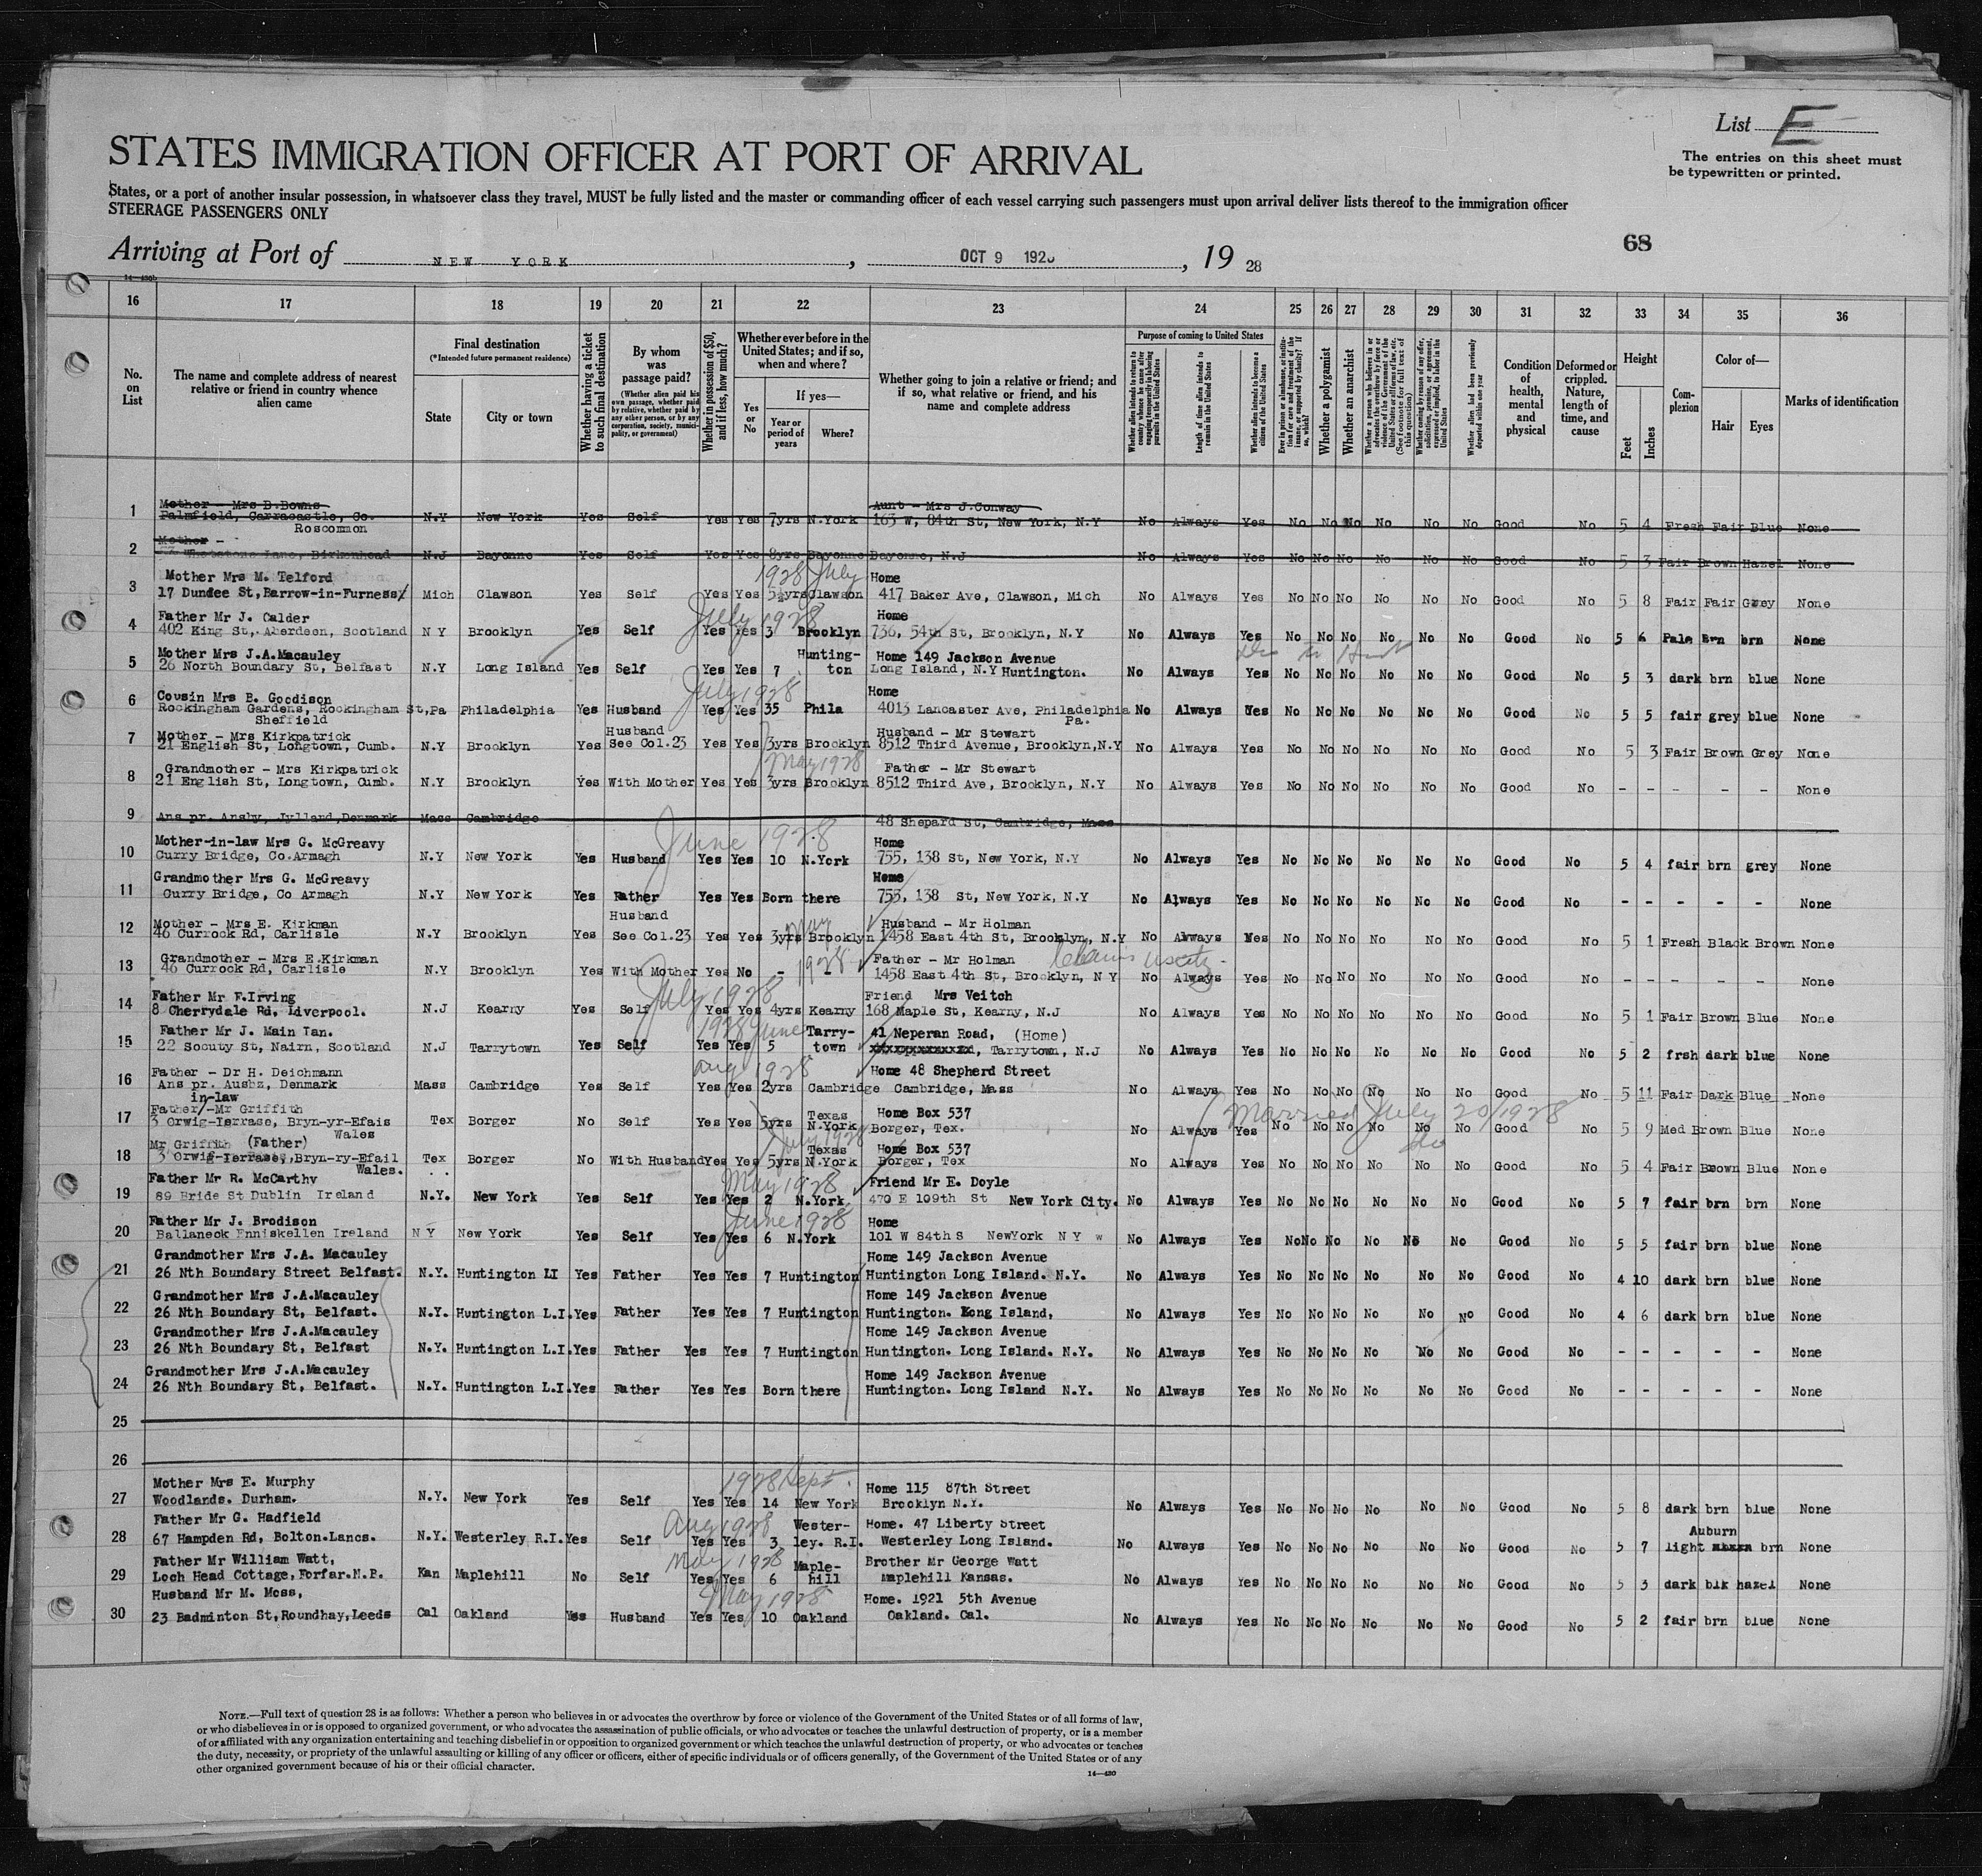 List E
The entries on this sheet must
be typewritten or printed.
STATES IMMIGRATION OFFICER AT PORT OF ARRIVAL
States, or a port of another insular possession, in whatsoever class they travel, MUST be fully listed and the master or commanding officer of each vessel carrying such passengers must upon arrival deliver lists thereof to the immigration officer
STEERAGE PASSENGERS ONLY
68
Arriving at Port of NEW YORK, OCT 9 192, 19 28
16 17 18 19 20 21 22 23 24 25 26 27 28 29 30 31 32 33 34 35 36
No. on List
The name and complete address of nearest relative or friend in country whence alien came
Final destination
(*Intended future permanent residence)
State
City or town
Whether having a ticket to such final destination
By whom was passage paid?
(Whether alien paid his own passage, whether paid by relative, whether paid by any other person, or by any corporation, society, municipality, or government)
Whether in possession of $50, and if less, how much?
Whether ever before in the United States; and if so, when and where?
Yes or No
If yes—
Year or period of years
Where?
Whether going to join a relative or friend; and if so, what relative or friend, and his name and complete address
Purpose of coming to United States
Whether alien intends to return to country whence he came after engaging temporarily in laboring pursuits in the United States
Length of time alien intends to remain in the United States
Whether alien intends to become a citizen of the United States
Ever in prison or almshouse, or institution for care and treatment of the insane, or supported by charity? If so, which?
Whether a polygamist
Whether an anarchist
Whether a person who believes in or advocates the overthrow by force or violence of the Government of the United States or all forms of law, etc. (See footnote for full text of this question)
Whether coming by reason of any offer, solicitation, promise, or agreement, expressed or implied, to labor in the United States
Whether alien had been previously deported within one year
Condition of health, mental and physical
Deformed or crippled. Nature, length of time, and cause
Height
Feet
Inches
Complexion
Color of—
Hair
Eyes
Marks of identification
Mother - Mrs B.Bowns Aunt - Mrs J.Conway
1 Palmfield, Carracastle, Co. N.Y New York Yes Self Yes Yes 7yrs N.York 163 W, 84th St, New York, N.Y No Always Yes No No No No No No Good No 5 4 Fresh Fair Blue None
Roscommon
Mother -
2 Whetstone Lane, Birkenhead N.J Bayonne Yes Self Yes Yes 8yrs Bayonne Bayonne, N.J No Always Yes No No No No No No Good No 5 3 Fair Brown Hazel None
Mother Mrs M. Telford 1928 July Home
3 17 Dundee St,Barrow-in-Furness/ Mich Clawson Yes Self Yes Yes 5½yrs Clawson 417 Baker Ave, Clawson, Mich No Always Yes No No No No No No Good No 5 8 Fair Fair Grey None
Father Mr J. Calder July 1928 Home
4 402 King St,.Aberdeen, Scotland N Y Brooklyn Yes Self Yes Yes 3 Brooklyn 736, 54th St, Brooklyn, N.Y No Always Yes No No No No No No Good No 5 6 Pale Brn brn None
Mother Mrs J.A.Macauley Hunting- Home 149 Jackson Avenue
5 26 North Boundary St, Belfast N.Y Long Island Yes Self Yes Yes 7 ton Long Island, N.Y Huntington. No Always Yes No No No No No No Good No 5 3 dark brn blue None
Cousin Mrs B. Goodison July 1928 Home
6 Rockingham Gardens, Rockingham St,Pa Philadelphia Yes Husband Yes Yes 35 Phila 4013 Lancaster Ave, Philadelphia No Always Yes No No No No No No Good No 5 5 fair grey blue None
Sheffield Pa.
Mother - Mrs Kirkpatrick Husband Husband - Mr Stewart
7 21 English St, Longtown, Cumb. N.Y Brooklyn Yes See Col.23 Yes Yes 3yrs Brooklyn 8512 Third Avenue, Brooklyn,N.Y No Always Yes No No No No No No Good No 5 3 Fair Brown Grey None
Grandmother - Mrs Kirkpatrick May 1928 Father - Mr Stewart
8 21 English St, Longtown, Cumb. N.Y Brooklyn Yes With Mother Yes Yes 3yrs Brooklyn 8512 Third Ave, Brooklyn, N.Y No Always Yes No No No No No No Good No - - - - - None
9 Ans pr. Ansby, Jylland,Denmark Mass Cambridge 48 Shepard St, Cambridge, Mass
Mother-in-law Mrs G. McGreavy June 1928 Home
10 Curry Bridge, Co.Armagh N.Y New York Yes Husband Yes Yes 10 N.York 755, 138 St, New York, N.Y No Always Yes No No No No No No Good No 5 4 fair brn grey None
Grandmother Mrs G. McGreavy Home
11 Curry Bridge, Co Armagh N.Y New York Yes Father Yes Yes Born there 755, 138 St, New York, N.Y No Always Yes No No No No No No Good No - - - - - None
Mother - Mrs E. Kirkman Husband May Husband - Mr Holman
12 46 Currock Rd, Carlisle N.Y Brooklyn Yes See Col.23 Yes Yes 3yrs Brooklyn 1458 East 4th St, Brooklyn, N.Y No Always Yes No No No No No No Good No 5 1 Fresh Black Brown None
Grandmother - Mrs E.Kirkman 1928 Father - Mr Holman Claims
13 46 Currock Rd, Carlisle N.Y Brooklyn Yes With Mother Yes No - - 1458 East 4th St, Brooklyn, N Y No Always Yes No No No No No No Good No - - - - - None
Father Mr F.Irving July 1928 Friend Mrs Veitch
14 8 Cherrydale Rd. Liverpool. N.J Kearny Yes Self Yes Yes 4yrs Kearny 168 Maple St, Kearny, N.J No Always Yes No No No No No No Good No 5 1 Fair Brown Blue None
Father Mr J. Main Ian. 1928 June Tarry- 41 Neperan Road, (Home)
15 22 Socuty St, Nairn, Scotland N.J Tarrytown Yes Self Yes Yes 5 town xxxxxxxxxxxxx, Tarrytown, N.J No Always Yes No No No No No No Good No 5 2 frsh dark blue None
Father - Dr H. Deichmann Aug 1928 Home 48 Shepherd Street
16 Ans pr. Ausbz, Denmark Mass Cambridge Yes Self Yes Yes 2yrs Cambridge Cambridge, Mass No Always Yes No No No No No No Good No 5 11 Fair Dark Blue None
in-law
Father/-Mr Griffith Texas Home Box 537 Married July 20/1928
17 3 Orwig-Terrase, Bryn-yr-Efais Tex Borger No Self Yes Yes 5yrs N.York Borger, Tex. No Always Yes No No No No No No Good No 5 9 Med Brown Blue None
Wales
Mr Griffith (Father) July 1928 Texas Home Box 537
18 3 Orwig-Terrase,,Bryn-ry-Efail Tex Borger No With Husband Yes Yes 5yrs N.York Borger, Tex No Always Yes No No No No No No Good No 5 4 Fair Brown Blue None
Wales.
Father Mr R. McCarthy May 1928 Friend Mr E. Doyle
19 89 Bride St Dublin Ireland N.Y. New York Yes Self Yes Yes 2 N.York. 470 E 109th St New York City. No Always Yes No No No No No No Good No 5 7 fair brn brn None
Father Mr J. Brodison June 1928 Home
20 Ballaneck Enniskellen Ireland N Y New York Yes Self Yes Yes 6 N.York 101 W 84th S NewYork N Y w No Always Yes No No No No No No Good No 5 5 fair brn blue None
Grandmother Mrs J.A. Macauley Home 149 Jackson Avenue
21 26 Nth Boundary Street Belfast. N.Y. Huntington LI Yes Father Yes Yes 7 Huntington Huntington Long Island. N.Y. No Always Yes No No No No No No Good No 4 10 dark brn blue None
Grandmother Mrs J.A.Macauley Home 149 Jackson Avenue
22 26 Nth Boundary St, Belfast. N.Y. Huntington L.I. Yes Father Yes Yes 7 Huntington Huntington. Long Island, No Always Yes No No No No No No Good No 4 6 dark brn blue None
Grandmother Mrs J.A.Macauley Home 149 Jackson Avenue
23 26 Nth Boundary St, Belfast N.Y. Huntington L.I. Yes Father Yes Yes 7 Huntington Huntington. Long Island. N.Y. No Always Yes No No No No No No Good No - - - - - None
Grandmother Mrs J.A.Macauley Home 149 Jackson Avenue
24 26 Nth Boundary St, Belfast. N.Y. Huntington L.I. Yes Father Yes Yes Born there Huntington. Long Island N.Y. No Always Yes No No No No No No Good No - - - - - None
25
26
Mother Mrs E. Murphy 1928 Sept. Home 115 87th Street
27 Woodlands. Durham. N.Y. New York Yes Self Yes Yes 14 New York Brooklyn N.Y. No Always Yes No No No No No No Good No 5 8 dark brn blue None
Father Mr G. Hadfield Aug 1928 Wester- Home. 47 Liberty Street Auburn
28 67 Hampden Rd, Bolton.Lancs. N.Y. Westerley R.I. Yes Self Yes Yes 3 ley. R.I. Westerley Long Island. No Always Yes No No No No No No Good No 5 7 light brn None
Father Mr William Watt, May 1928 Maple- Brother Mr George Watt
29 Loch Head Cottage, Forfar.N.B. Kan Maplehill No Self Yes Yes 6 hill Maplehill Kansas. No Always Yes No No No No No No Good No 5 3 dark blk hazel None
Husband Mr M. Moss, May 1928 Home. 1921 5th Avenue
30 23 Badminton St,Roundhay,Leeds Cal Oakland Yes Husband Yes Yes 10 Oakland Oakland. Cal. No Always Yes No No No No No No Good No 5 2 fair brn blue None
NOTE.—Full text of question 28 is as follows: Whether a person who believes in or advocates the overthrow by force or violence of the Government of the United States or of all forms of law,
or who disbelieves in or is opposed to organized government, or who advocates the assassination of public officials, or who advocates or teaches the unlawful destruction of property, or is a member
of or affiliated with any organization entertaining and teaching disbelief in or opposition to organized government or which teaches the unlawful destruction of property, or who advocates or teaches
the duty, necessity, or propriety of the unlawful assaulting or killing of any officer or officers, either of specific individuals or of officers generally, of the Government of the United States or of any
other organized government because of his or their official character.
14—430